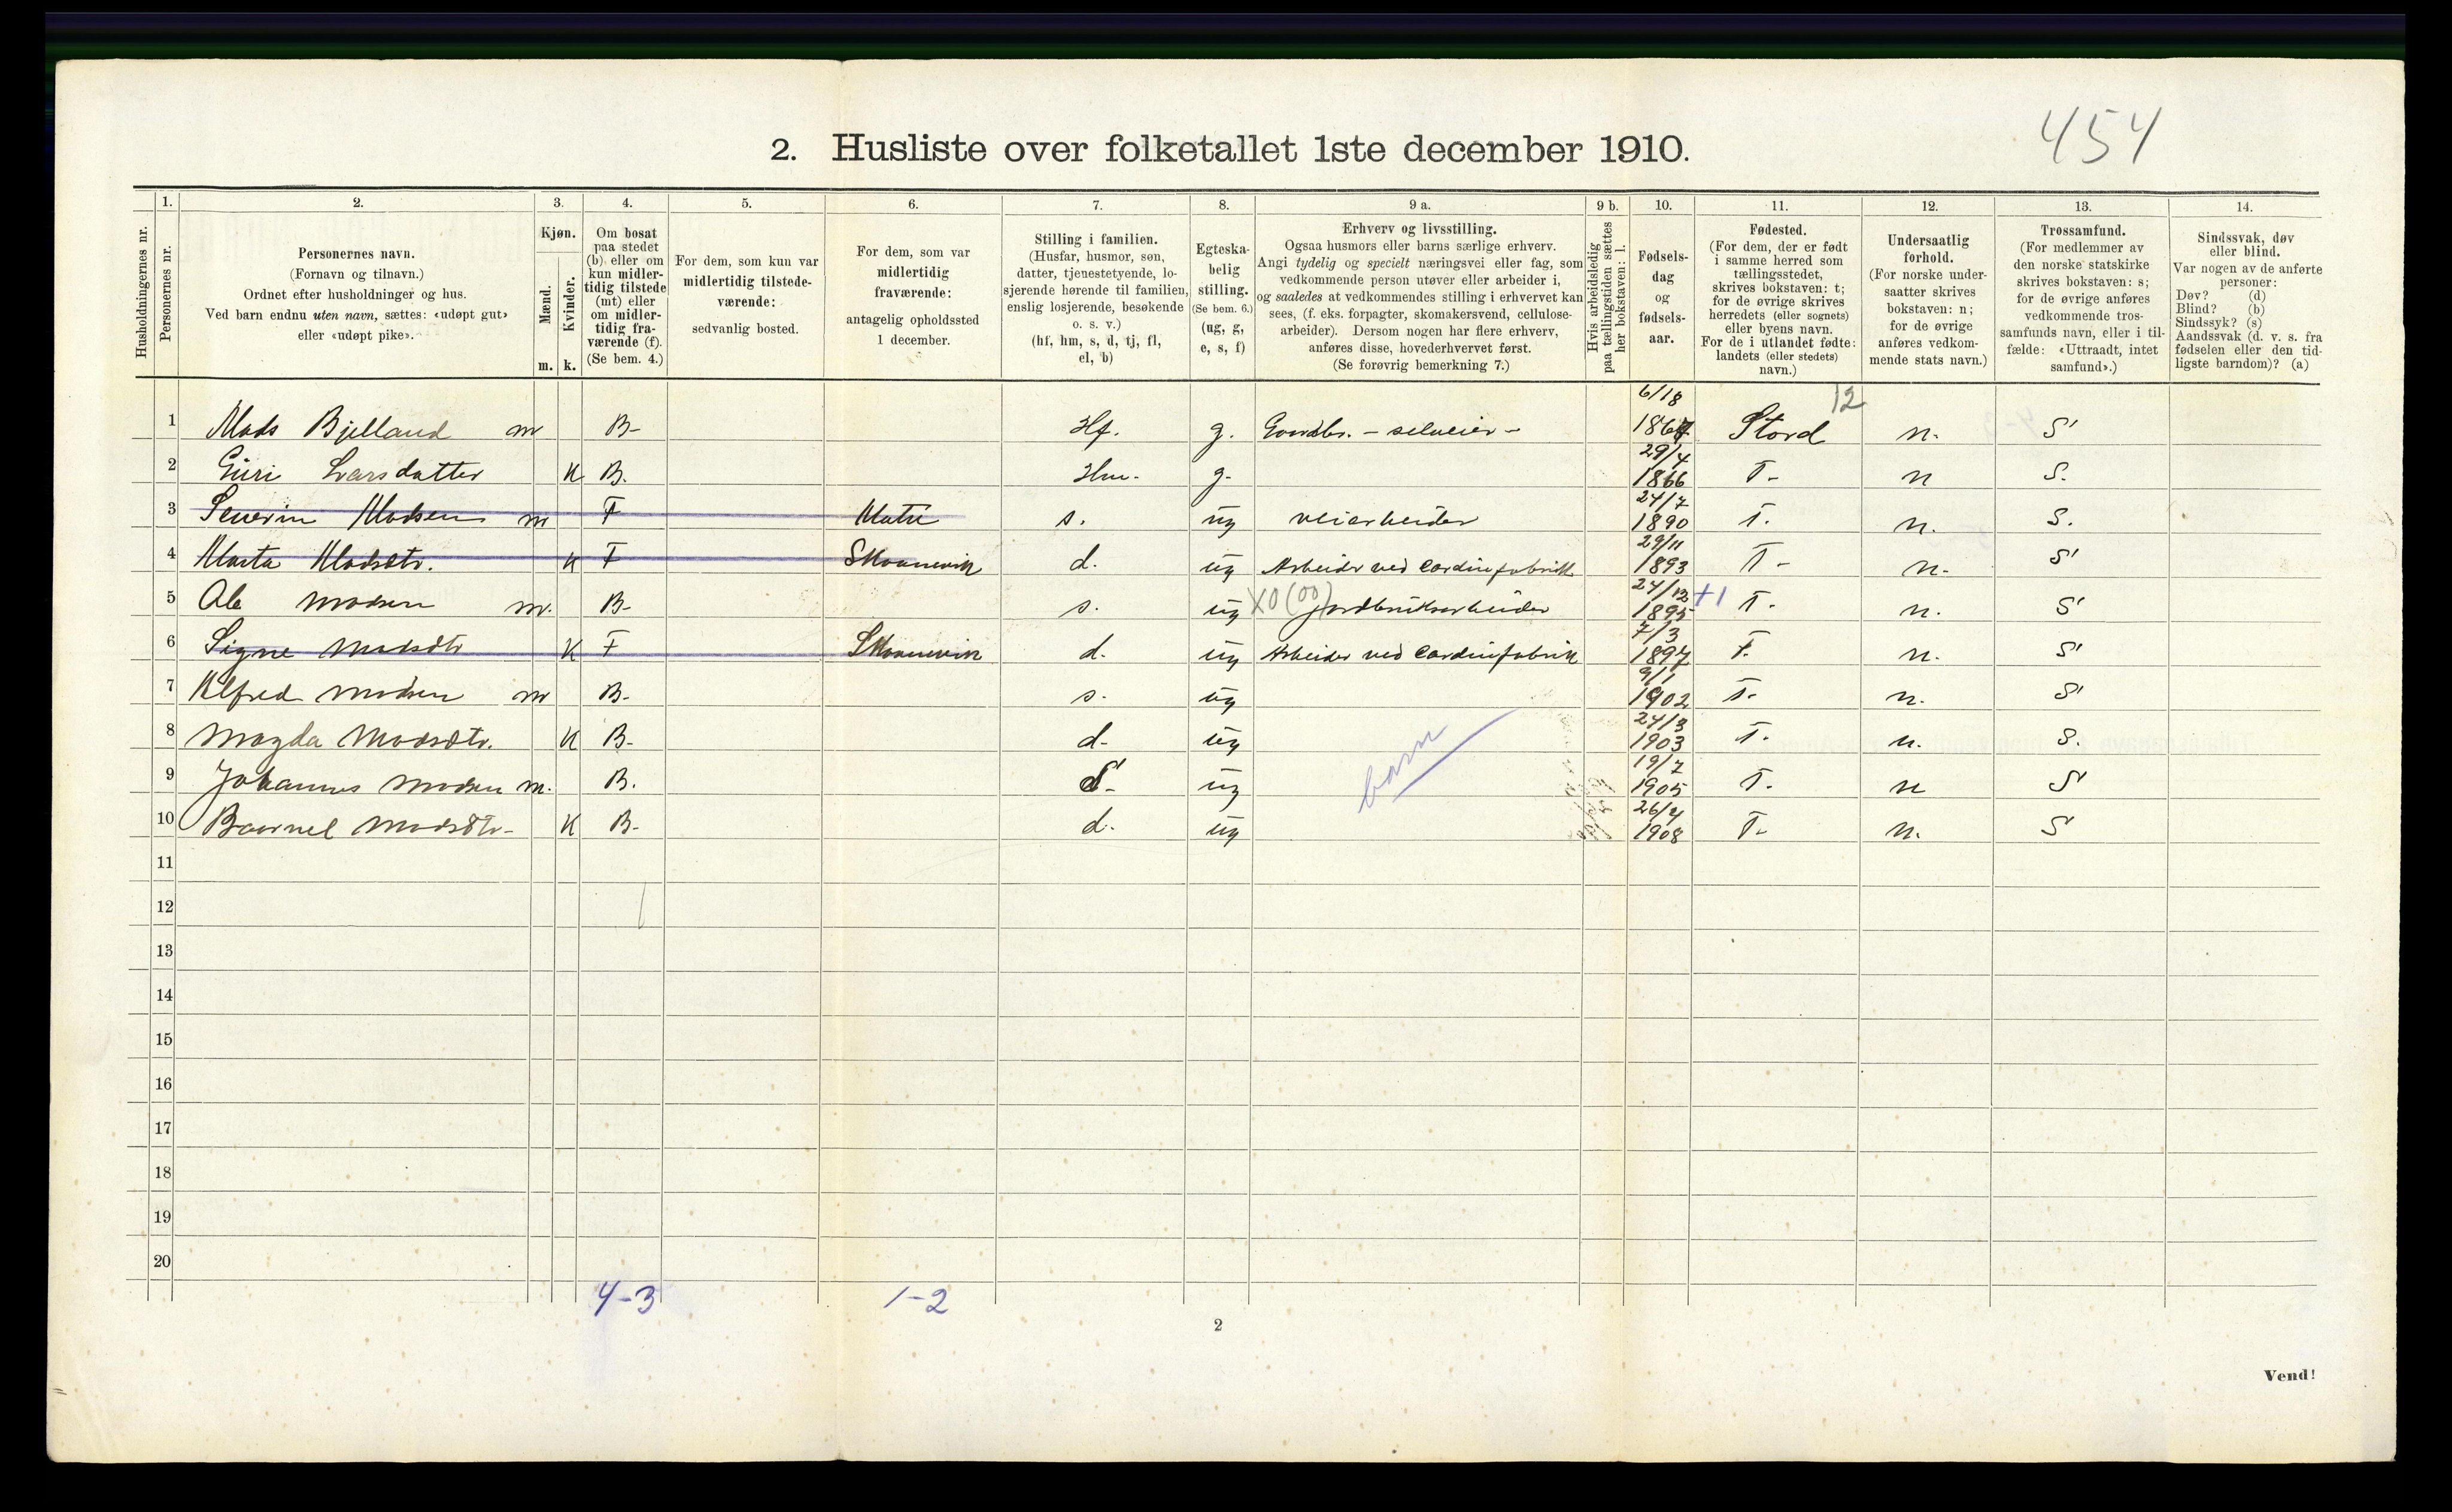 454
2. Husliste over folketallet 1ste december 1910.
Husholdningernes nr.
1. Personernes nr.
2. Personernes navn. (Fornavn og tilnavn.) Ordnet efter husholdninger og hus. Ved barn endnu uten navn, sættes: «udøpt gut» eller «udøpt pike».
3. Kjøn. Mænd. m. Kvinder. k.
4. Om bosat paa stedet (b) eller om kun midler-tidig tilstede (mt) eller om midler-tidig fra-værende (f). (Se bem. 4.)
5. For dem, som kun var midlertidig tilstede-værende: sedvanlig bosted.
6. For dem, som var midlertidig fraværende: antagelig opholdssted 1 december.
7. Stilling i familien. (Husfar, husmor, søn, datter, tjenestetyende, lo-sjerende hørende til familien, enslig losjerende, besøkende o. s. v.) (hf, hm, s, d, tj, fl, el, b)
8. Egteska-belig stilling. (Se bem. 6.) (ug, g, e, s, f)
9 a. Erhverv og livsstilling. Ogsaa husmors eller barns særlige erhverv. Angi tydelig og specielt næringsvei eller fag, som vedkommende person utøver eller arbeider i, og saaledes at vedkommendes stilling i erhvervet kan sees, (f. eks. forpagter, skomakersvend, cellulose-arbeider). Dersom nogen har flere erhverv, anføres disse, hovederhvervet først. (Se forøvrig bemerkning 7.)
9 b. Hvis arbeidsledig paa tællingstiden sættes her bokstaven: l.
10. Fødsels-dag og fødsels-aar.
11. Fødested. (For dem, der er født i samme herred som tællingsstedet, skrives bokstaven: t; for de øvrige skrives herredets (eller sognets) eller byens navn. For de i utlandet fødte: landets (eller stedets) navn.)
12. Undersaatlig forhold. (For norske under-saatter skrives bokstaven: n; for de øvrige anføres vedkom-mende stats navn.)
13. Trossamfund. (For medlemmer av den norske statskirke skrives bokstaven: s; for de øvrige anføres vedkommende tros-samfunds navn, eller i til-fælde: «Uttraadt, intet samfund».)
14. Sindssvak, døv eller blind. Var nogen av de anførte personer: Døv? (d) Blind? (b) Sindssyk? (s) Aandssvak (d. v. s. fra fødselen eller den tid-ligste barndom)? (a)
1 Mads Bjelland m B- Hf. g. Gaardbr. - selveier - 6/18 1867 Stord 12 n. S
2 Guri Larsdatter K B. Hm. g. 29/4 1866 T- n S.
3 Severin Madsen m F Matre s. ug veiarbeider 24/7 1890 T. n. S.
4 Marta Madsdtr. K F Skaanevik d. ug Arbeider ved Sardinfabrik 29/11 1893 T- n- S
5 Ole Madsen m. B- s. ug X0(00) jordbruksarbeider 24/12 1895 +1 T. n. S
6 Signe Madsdtr K F Skaanevik d. ug Arbeider ved Sardinfabrik 7/3 1897 T. n. S
7 Alfred Madsen m B- s. ug 9/1 1902 T- n. S
8 Magda Madsdtr. K B- d- ug 24/3 1903 T. n. S.
9 Johannes Madsen m. B. S- ug barn 19/7 1905 T. n S
10 Baarnel Madsdtr- K B- d. ug 26/4 1908 T- n. S
11
12
13
14
15
16
17
18
19
20
4-3 1-2
2
Vend!